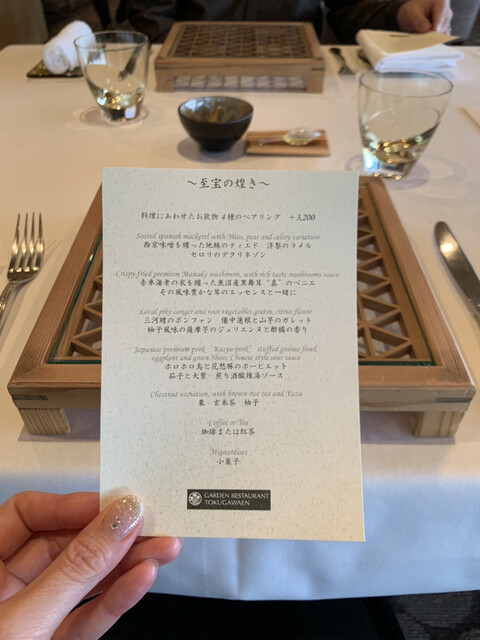 ～至宝の煌き～
料理にあわせたお飲物 4種のペアリング ＋3,200
Seared spanish mackerel with Miso, pear and celery variation
西京味噌を纏った地鰆のティエド 洋梨のラメル
セロリのデクリネゾン
Crispy fried premium Maitake mushroom, with rich taste mushrooms sauce
赤車海老の衣を纏った魚沼産黒舞茸“真”のベニエ
その風味豊かな茸のエッセンスと一緒に
Local poky conger and root vegetables gratin, citrus flavor
三河鱧のボンファン 備中蓮根と山芋のガレット
柚子風味の薩摩芋のジュリエンヌと酢橘の香り
Japanese premium pork Kasyu-pork stuffed guinea fowl,
eggplant and green Shiso, Chinese style sour sauce
ホロホロ鳥と花悠豚のポーピエット
茄子と大葉 煎り酒酸辣湯ソース
Chestnut variation, with brown rice tea and Yuzu
栗 玄米茶 柚子
Coffee or Tea
珈琲または紅茶
Mignardises
小菓子
GARDEN RESTAURANT
TOKUGAWAEN